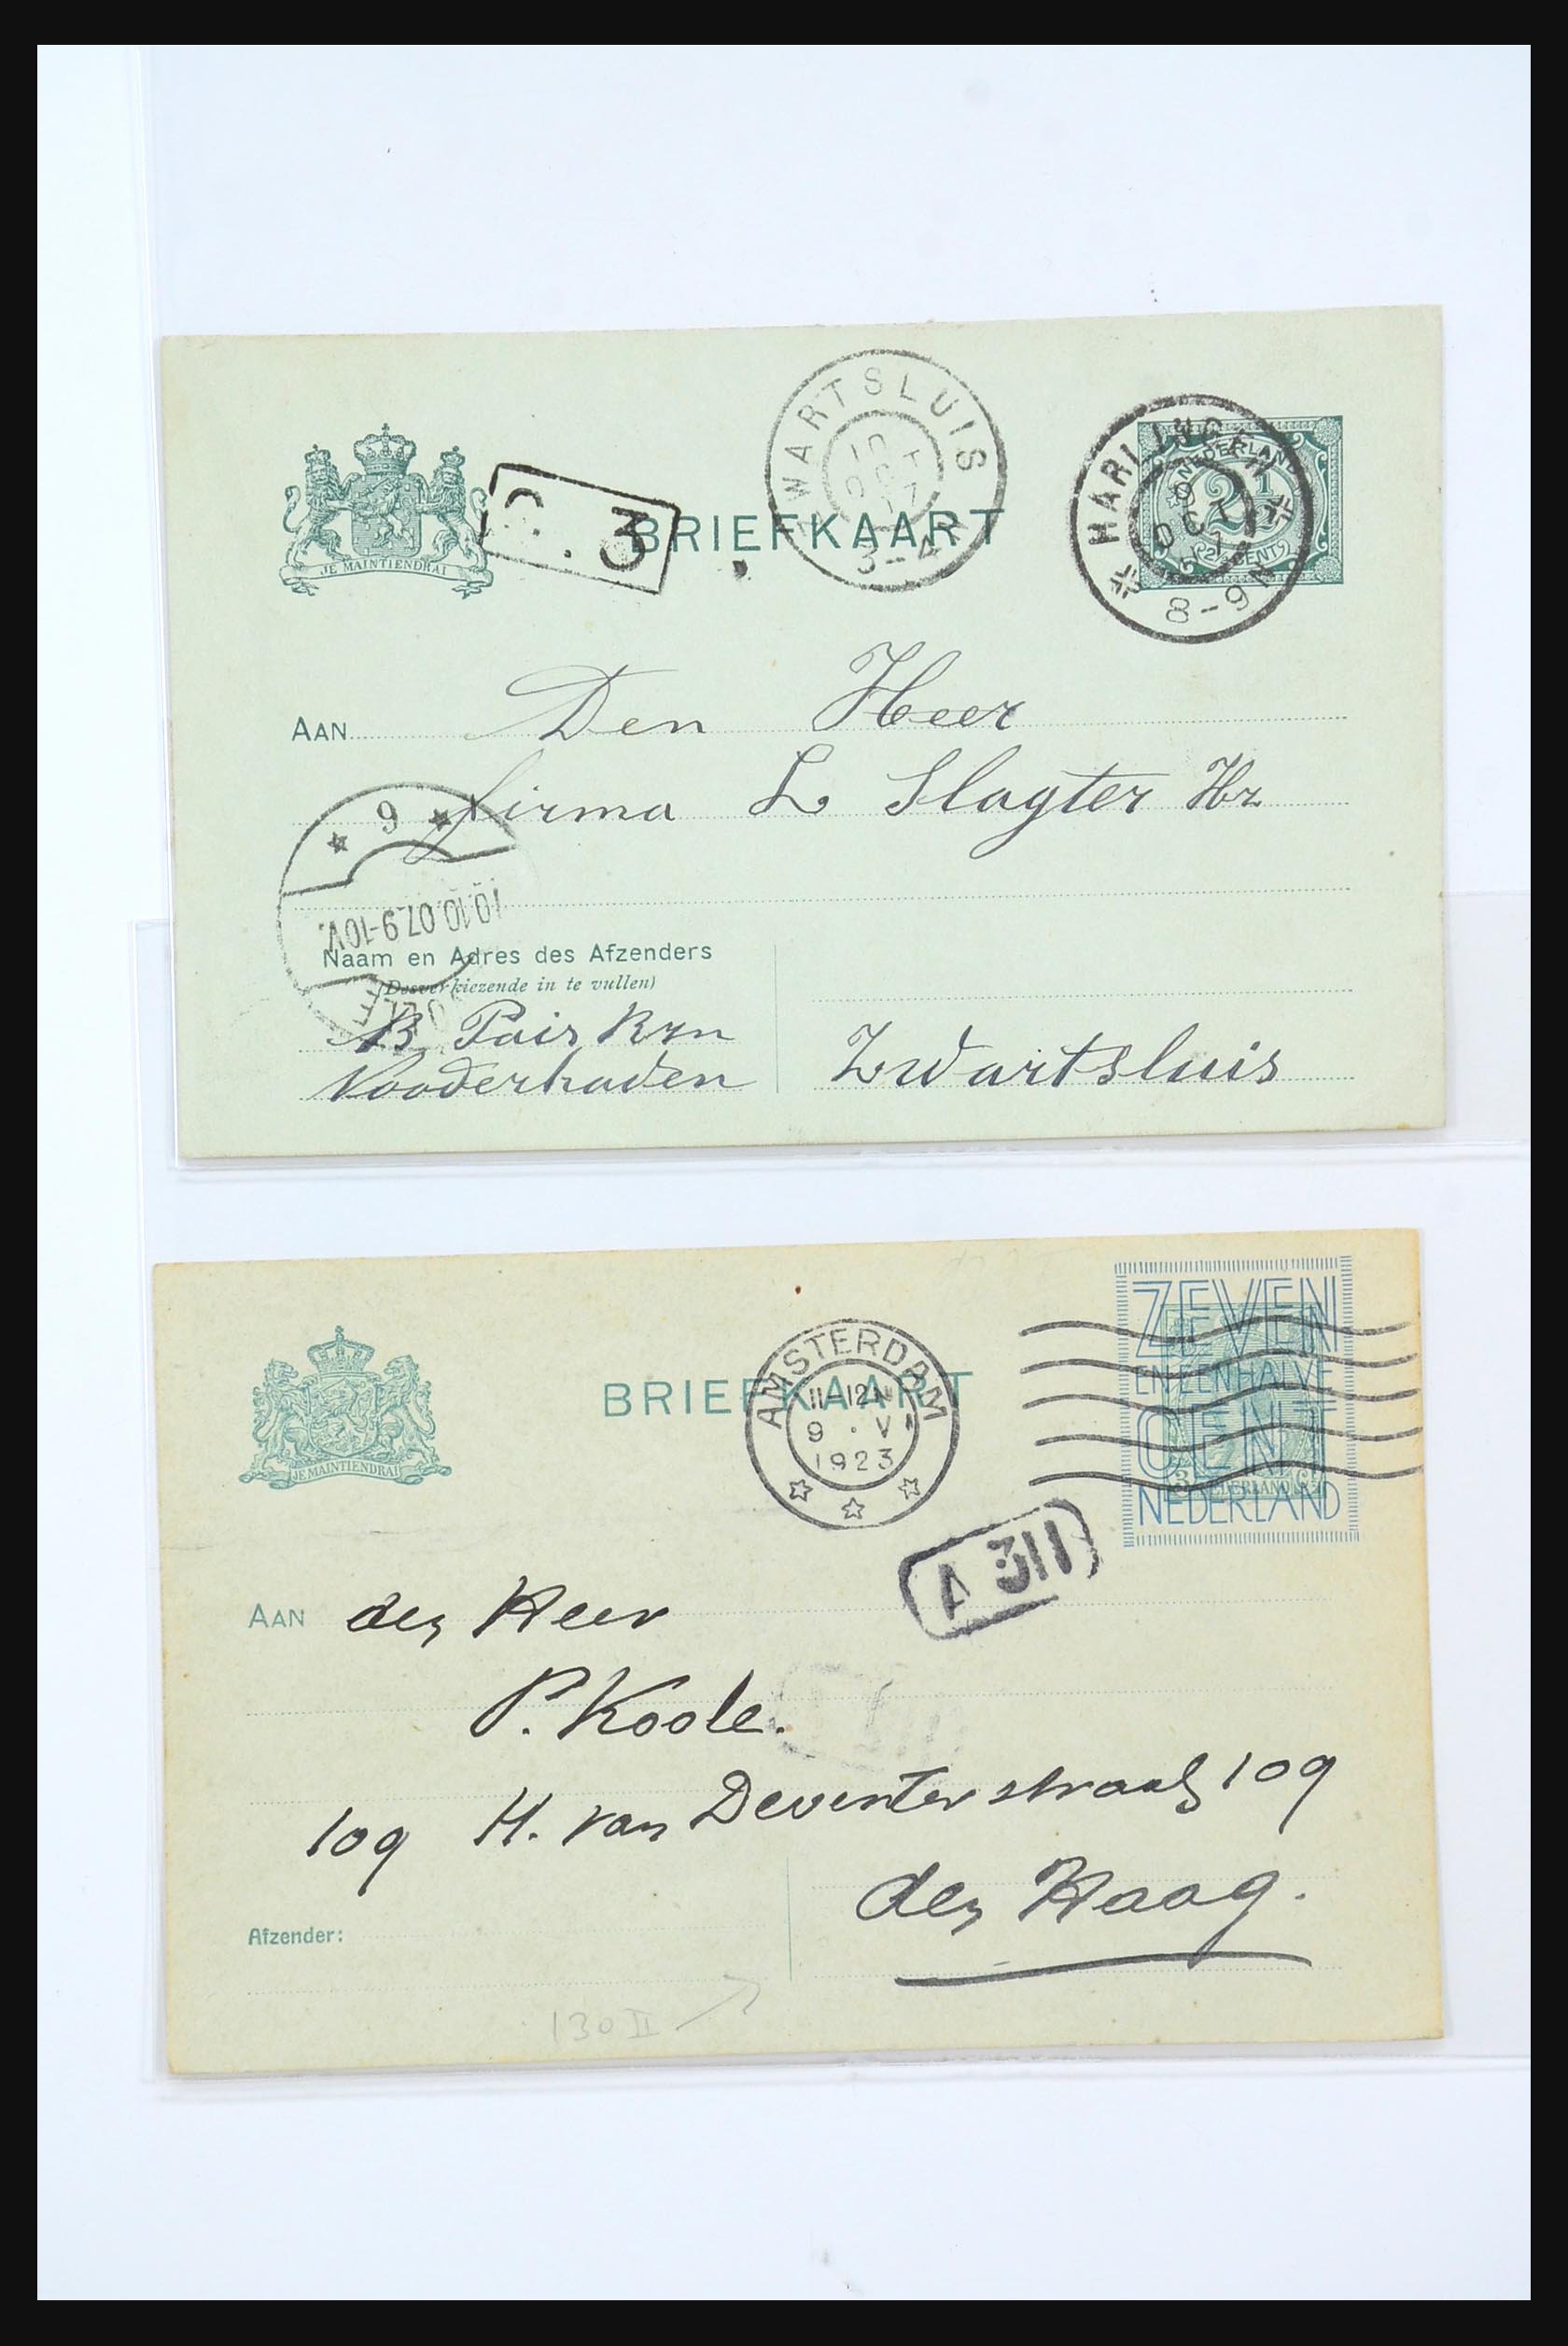 ZWARTSLUIS
10
OCT
07
3-4N
HARLINGEN
9
OCT
07
8-9N
NEDERLAND
2½
(2½ CENT)
JE MAINTIENDRAI
3
BRIEFKAART
AAN Den Heer
firma L Slagter Hz
6
10.10.07 9-10V.
Naam en Adres des Afzenders
(Desverkiezende in te vullen)
B Pais Rzn
Vooderhaven
Zwartsluis
JE MAINTIENDRAI
BRIEFKAART
AMSTERDAM
11-12N
9 . VI
1923
ZEVEN
EN EEN HALVE
CENT
NEDERLAND
3
NEDERLAND
A 311
AAN den Heer
P. Koole.
109 H. van Deventerstraat 109
den Haag.
Afzender:
130 II